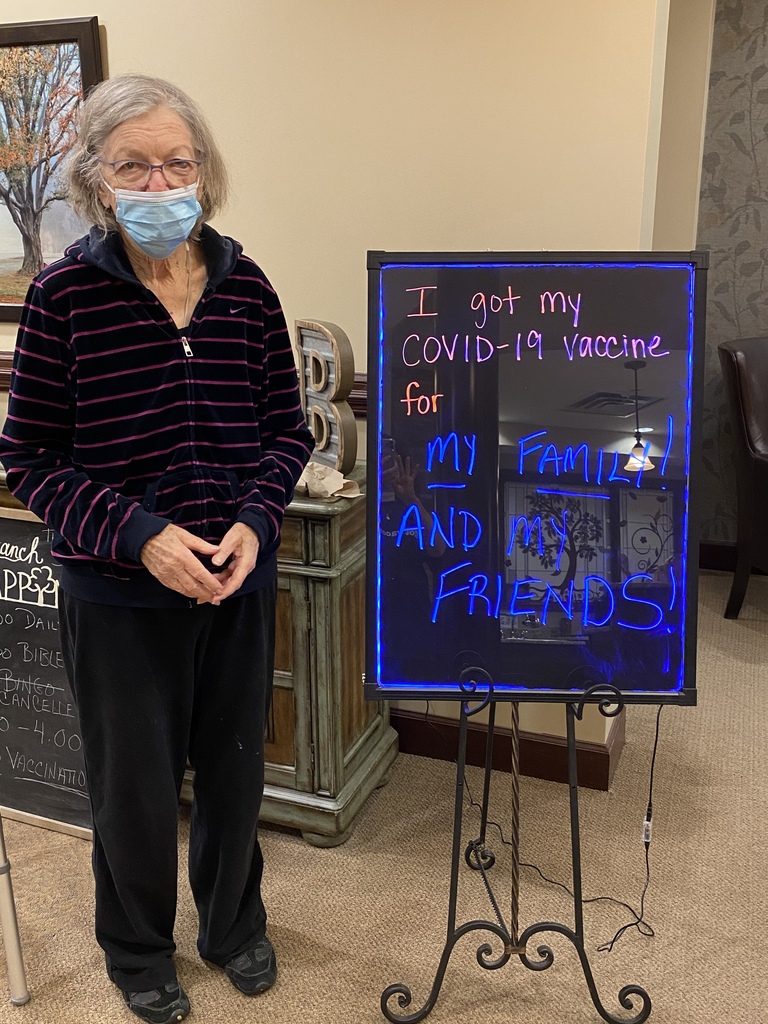 I got my
COVID-19 vaccine
for
MY FAMILY!
AND MY
FRIENDS!
B
DAIL
BIBLE
BINGO
CANCELLE
-4:00
VACCINATIO